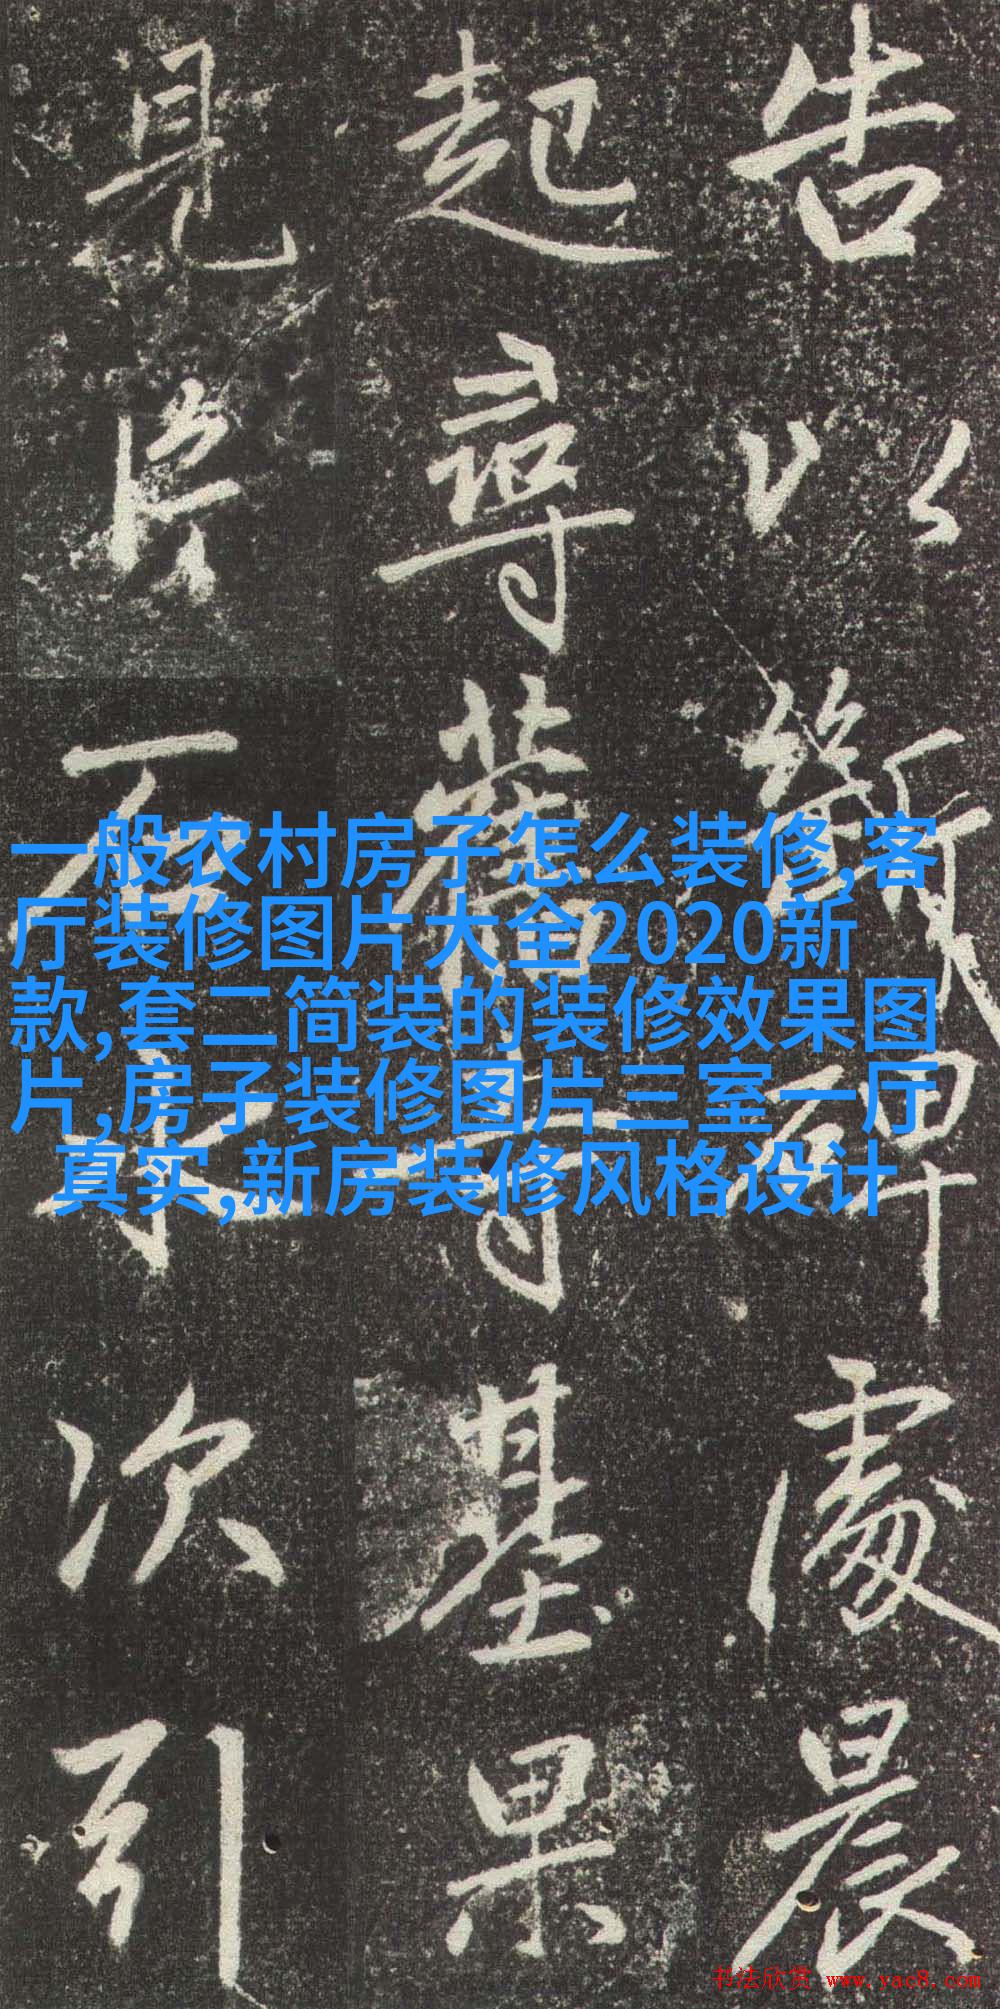 告以斷碑處晨
起尋舊寺基果
見片石水次引
一般农村房子怎么装修,客
厅装修图片大全2020新
款,套二简装的装修效果图
片,房子装修图片三室一厅
真实,新房装修风格设计
书法欣赏 www.yac8.com